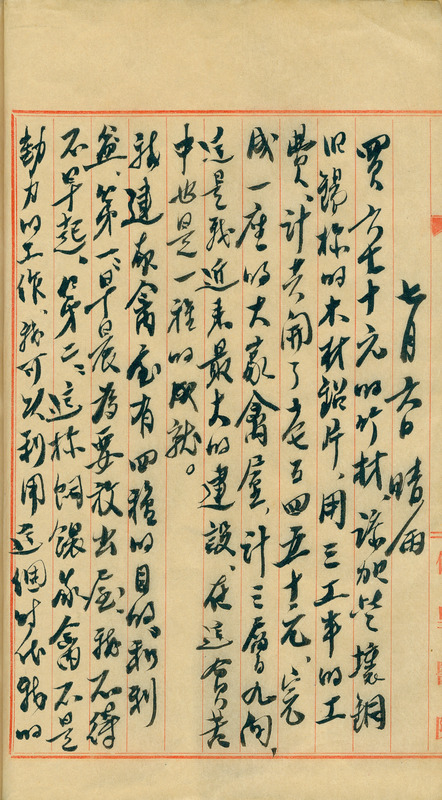 七月六日 晴雨
買六七十元的竹材、添加些壞銅
旧錫㭊的木材鋁片、用三工半的工
費、計共開了七百四五十元、完
成一座的大家禽屋、計三層九間、
這是我近来最大的建設、在這貧苦
中也是一種的成就。
我建家禽屋有四種的目的、和利
益、第一、早晨為要放出屋、我不得
不早起、第二、這㭊飼餵家禽不是
勃力的工作、我可以利用這個时代我的